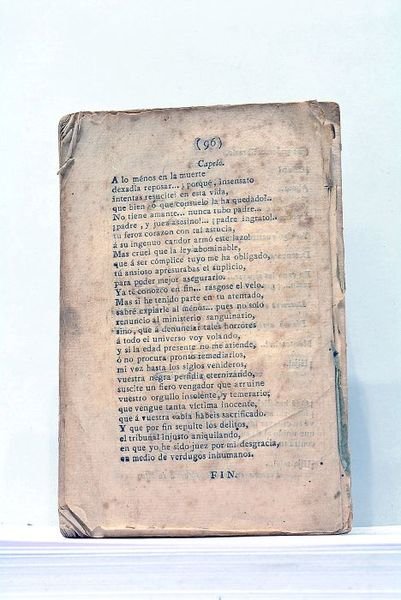 (96)
Capelo.
A lo ménos en la muerte
dexadla reposar... ¡porqué, insensato
intentas resucite! en esta vida,
que bien, ó que consuelo la ha quedado?..
No tiene amante... nunca tubo padre...
¡padre, y juez asesino!... ¡padre ingrato!..
tu feroz corazon con tal astucia,
á su ingenuo candor armó este lazo!
Mas cruel que la ley abominable,
que á ser cómplice tuyo me ha obligado,
tú ansioso apresurabas el suplicio,
para poder mejor asegurarlo.
Ya te conozco en fin... rásgose el velo.
Mas si he tenido parte en tu atentado,
sabré expiarle al ménos... pues no solo
renuncio al ministerio sanguinario,
sino, que á denunciar tales horrores
á todo el universo voy volando,
y si la edad presente no me atiende,
ó no procura pronto remediarlos,
mi voz hasta los siglos venideros,
vuestra negra perfidia eternizando,
suscite un fiero vengador que arruine
vuestro orgullo insolente, y temerario;
que vengue tanta víctima inocente,
que á vuestra rabia habeis sacrificado.
Y que por fin sepulte los delitos,
el tribunal injusto aniquilando,
en que yo he sido juez por mi desgracia,
en medio de verdugos inhumanos.
FIN.